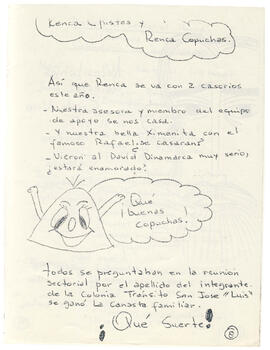 Renca Chistes y
Renca Copuchas.
Así que Renca se va con 2 casorios
este año.
- Nuestra asesora y miembro del equipo
de apoyo se nos casa.
- Y nuestra bella Ximenita con el
famoso Rafael ¿se casaran?
- Vieron al David Dinamarca muy serio,
¿estará enamorado?
¡Qué
buenas
copuchas.
todos se preguntaban en la reunión
sectorial por el apellido del integrante
de la Colonia Tránsito San Jose "Luis"
se ganó la canasta familiar.
¡Qué Suerte!